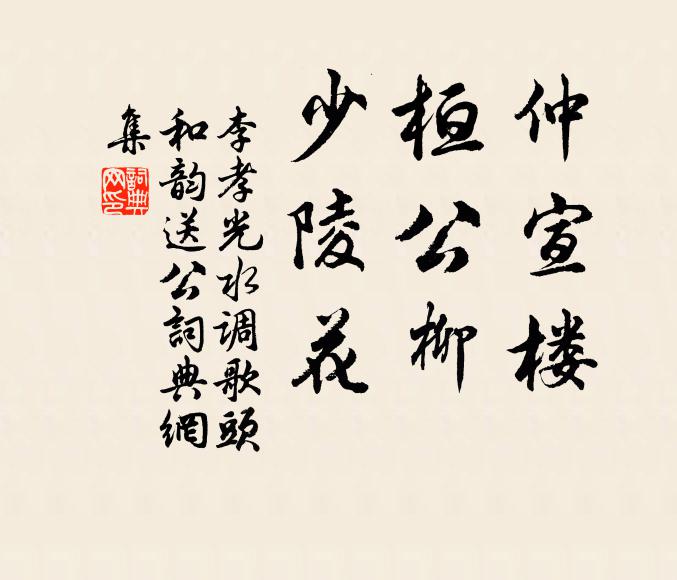 仲宣楼
桓公柳
少陵花
李孝光水调歌頭
和韵送公詞典網
集
詞典網印